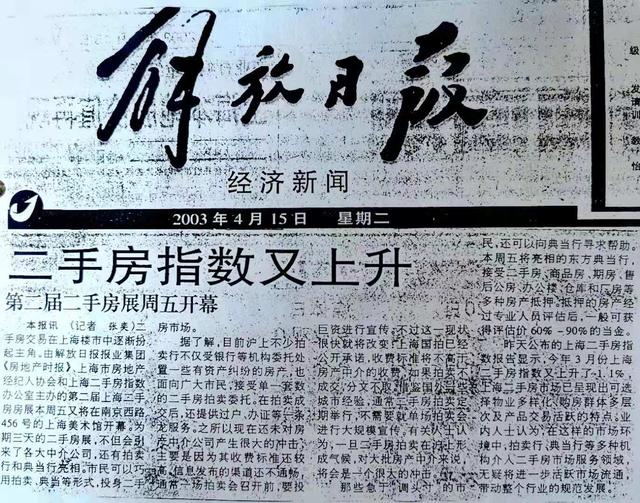 解放日报
经济新闻
2003年4月15日 星期二
二手房指数又上升
第二届二手房展周五开幕
本报讯 （记者 张奕）二
手房交易在上海楼市中逐渐扮
起主角。由解放日报报业集团
《房地产时报》、上海市房地产
经纪人协会和上海二手房指数
办公室主办的第二届上海二手
房房展本周五又将在南京西路
456号的上海美术馆开幕。为
期三天的二手房展，不但会引
来了各大中介公司，还有拍卖
行和典当行亮相。市民可以巧
用拍卖、典当等形式，投身二手
房市场。
据了解，目前沪上不少拍
卖行不仅受银行等机构委托处
置一些有资产纠纷的房产，也
面向广大市民，接受单一套数
的二手房拍卖委托。在拍卖成
交后，还提供过户、办证等一条
龙服务。之所以现在还未对房
屋中介公司产生很大的冲击，
主要是因为其收费标准还较
高，信息发布的渠道还不通畅，
通常一场拍卖会召开前，要投
巨资进行宣传。不过这一现状
很快就将改变。上海国拍已经
公开承诺，收费标准将不高于
房产中介的收费，如果拍卖不
成交，分文不取。借鉴国外一些
城市经验，通常二手房拍卖定
期举行，不需要就单场拍卖会
进行大规模宣传，有关人士认
为，一旦二手房拍卖在沪上形
成气候，对大批房产中介来说，
将会是一个很大的冲击。
那些急于“调头寸”的市
民，还可以向典当行寻求帮助。
本周五将亮相的东方典当行，
接受二手房、商品房、期房、售
后公房、办公楼、仓库和厂房等
多种房产抵押，抵押的房产经
过专业人员评估后，一般可获
得评估价60%－90%的当金。
昨天公布的上海二手房指
数报告显示，今年3月份上海
二手房指数又上升了1.1%，
上海二手房市场已呈现出可选
择物业多样化、购房群体多层
次及产品交易活跃的特点。业
内人士认为，在这样的市场环
境中，拍卖行、典当行等多种机
构介入二手房市场服务领域，
无疑将进一步活跃市场流通，
带动整个行业的规范发展。
级
发
训
教
怡